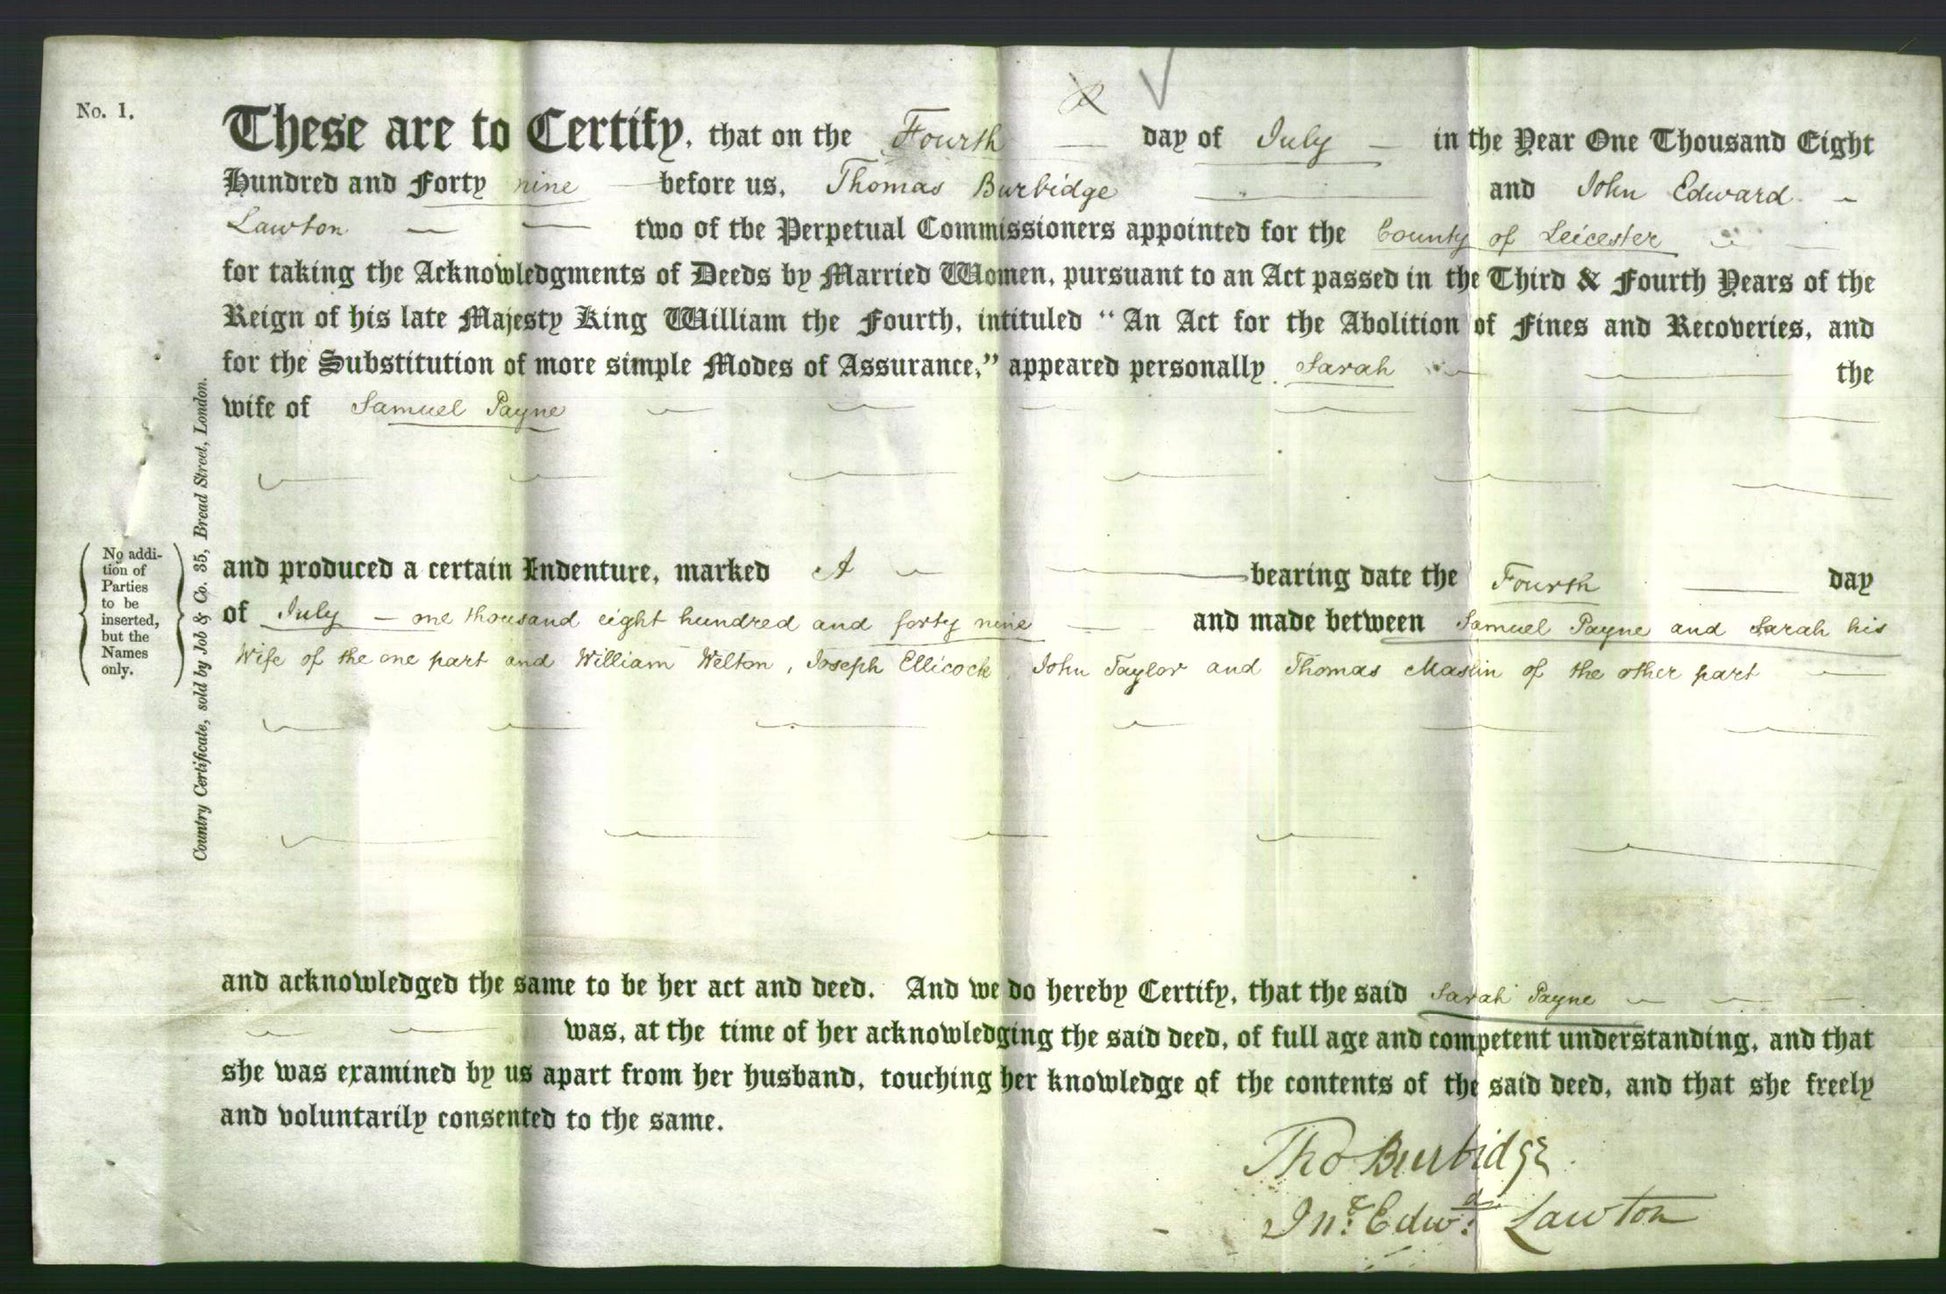 No. 1.
These are to Certify, that on the Fourth day of July in the Year One Thousand Eight
Hundred and Forty nine before us, Thomas Burbidge and John Edward
Lawton two of the Perpetual Commissioners appointed for the County of Leicester
for taking the Acknowledgments of Deeds by Married Women, pursuant to an Act passed in the Third & Fourth Years of the
Reign of his late Majesty King William the Fourth, intituled “An Act for the Abolition of Fines and Recoveries, and
for the Substitution of more simple Modes of Assurance,” appeared personally Sarah the
wife of Samuel Payne
and produced a certain Indenture, marked A bearing date the Fourth day
of July one thousand eight hundred and forty nine and made between Samuel Payne and Sarah his
Wife of the one part and William Welton, Joseph Ellicock, John Taylor and Thomas Maskin of the other part
and acknowledged the same to be her act and deed. And we do hereby Certify, that the said Sarah Payne
was, at the time of her acknowledging the said deed, of full age and competent understanding, and that
she was examined by us apart from her husband, touching her knowledge of the contents of the said deed, and that she freely
and voluntarily consented to the same.
Tho Burbidge
Jno. Edwd. Lawton
No addi-
tion of
Parties
to be
inserted,
but the
Names
only.
Country Certificate, sold by Job & Co. 35, Bread Street, London.